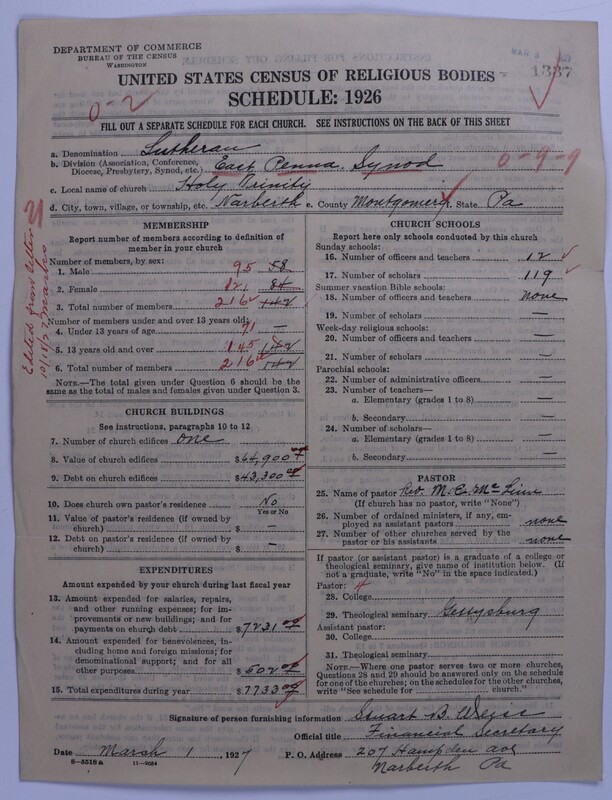 DEPARTMENT OF COMMERCE
BUREAU OF THE CENSUS
WASHINGTON
1337
UNITED STATES CENSUS OF RELIGIOUS BODIES
SCHEDULE: 1926
0-2
FILL OUT A SEPARATE SCHEDULE FOR EACH CHURCH. SEE INSTRUCTIONS ON THE BACK OF THIS SHEET
a. Denomination Lutheran
b. Division (Association, Conference, Diocese, Presbytery, Synod, etc.) East Penna. Synod 0-9-9
c. Local name of church Holy Trinity
d. City, town, village, or township, etc. Narberth e. County Montgomery f. State. Pa
Edited from letter
10/15/27
MEMBERSHIP
Report number of members according to definition of
member in your church
Number of members, by sex:
1. Male 95 58
2. Female 121 84
3. Total number of members 216 142
Number of members under and over 13 years old:
4. Under 13 years of age 71 —
5. 13 years old and over 145 142
6. Total number of members 216 142
NOTE.—The total given under Question 6 should be
same as the total of males and females given under Question 3.
CHURCH BUILDINGS
See instructions, paragraphs 10 to 12
7. Number of church edifices one
8. Value of church edifices $64,900.00
9. Debt on church edifices $43,300.00
10. Does church own pastor's residence No
Yes or No
11. Value of pastor's residence (if owned by
church) $ —
12. Debt on pastor's residence (if owned by
church) $ —
EXPENDITURES
Amount expended by your church during last fiscal year
13. Amount expended for salaries, repairs,
and other running expenses; for im-
provements or new buildings; and for
payments on church debt $7231.00
14. Amount expended for benevolences, in-
cluding home and foreign missions; for
denominational support; and for all
other purposes $502.00
15. Total expenditures during year $7733.00
CHURCH SCHOOLS
Report here only schools conducted by this church
Sunday schools:
16. Number of officers and teachers 12
17. Number of scholars 119
Summer vacation Bible schools:
18. Number of officers and teachers none
19. Number of scholars —
Week-day religious schools:
20. Number of officers and teachers —
21. Number of scholars —
Parochial schools:
22. Number of administrative officers —
23. Number of teachers—
a. Elementary (grades 1 to 8) —
b. Secondary —
24. Number of scholars—
a. Elementary (grades 1 to 8) —
b. Secondary —
PASTOR
25. Name of pastor Rev. M. E.
(If church has no pastor, write "None")
26. Number of ordained ministers, if any, em-
ployed as assistant pastors none
27. Number of other churches served by the
pastor or his assistants none
If pastor (or assistant pastor) is a graduate of a college or
theological seminary, give name of institution below. (If
not a graduate, write "No" in the space indicated.)
Pastor: 4
28. College
29. Theological seminary Gettysburg
Assistant pastor:
30. College
31. Theological seminary
NOTE.—Where one pastor serves two or more churches,
Questions 28 and 29 should be answered only on the schedule
for one of the churches; on the schedules for the other churches,
write "See schedule for church."
Signature of person furnishing information Stuart B.
Official title Financial Secretary
Date March 1, 1927 P. O. Address 207 Hampden ave
8-5518a 11-9084 Narberth Pa